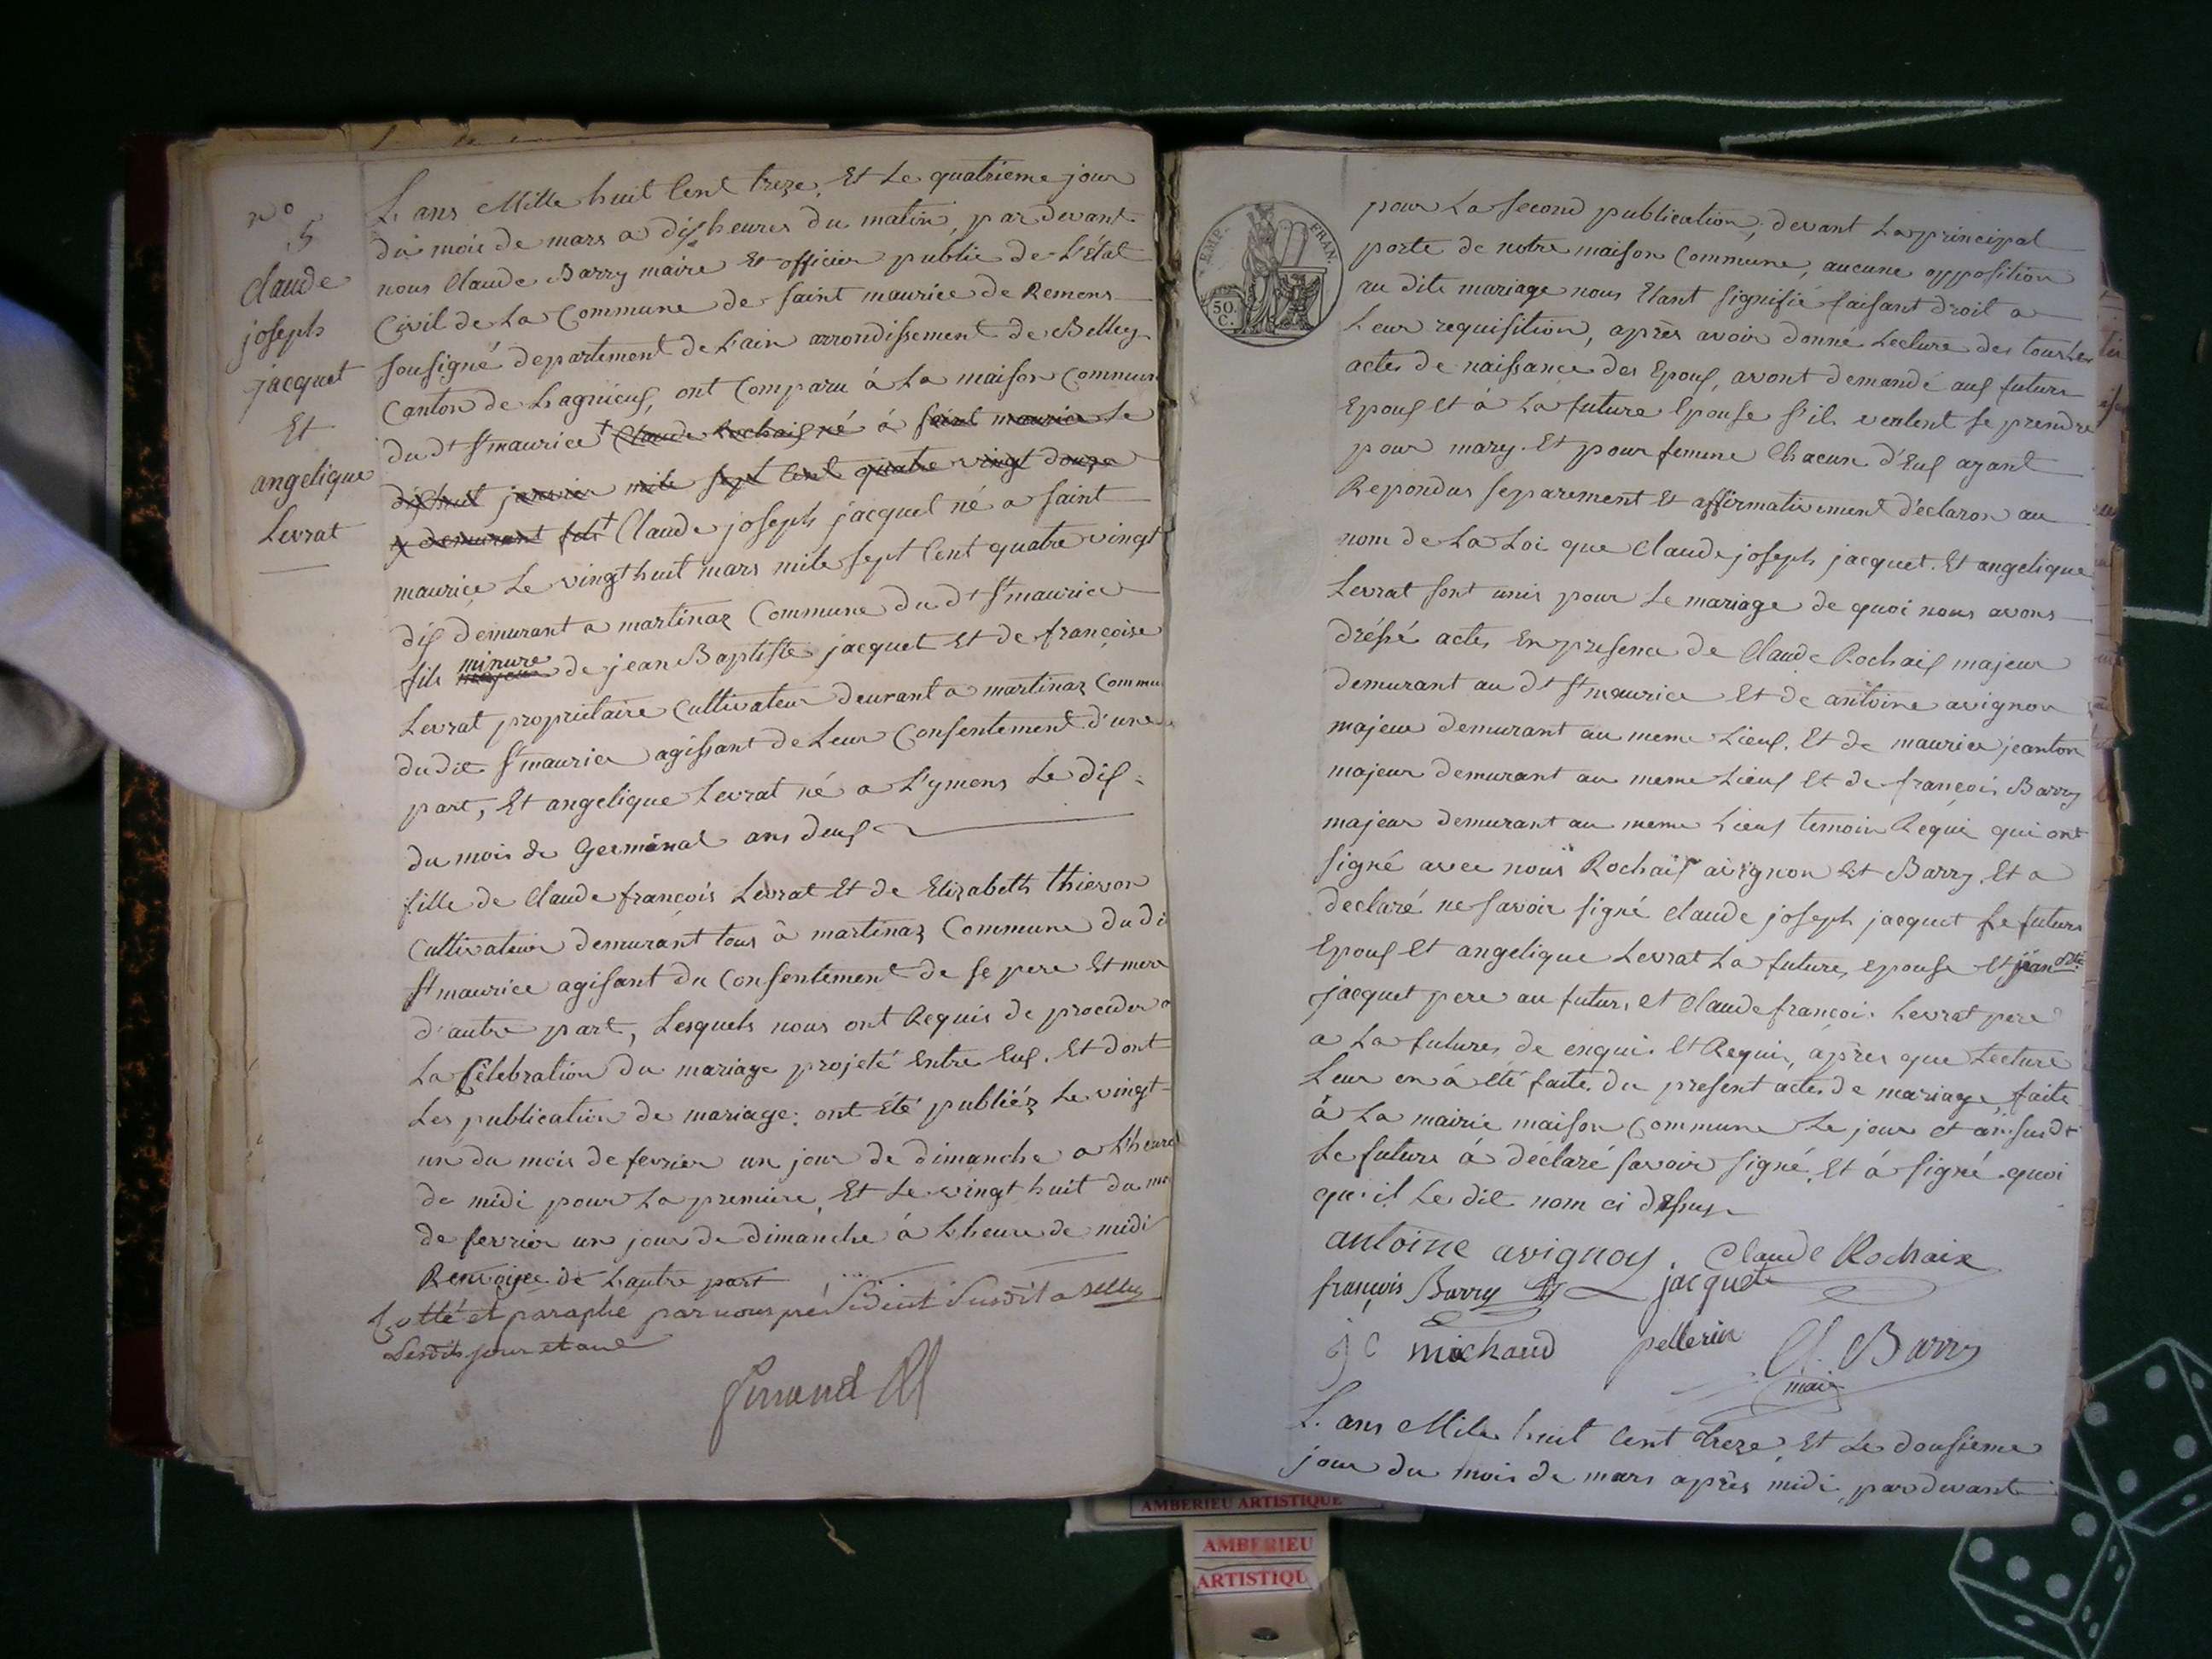 n° 5
claude
joseph
jacquet
Et
angelique
Levrat
L ans Mille huit Cent treze, Et Le quatrieme jour
du mois de mars a dix heures du matin, par devant
nous Claude Barry maire Et officier public de L'État
Civil de La Commune de saint maurice de Remens
sousigné departement de L'ain arrondissement de Belley
Canton de Lagnieux, ont Comparu à La maison Commun
du dt St maurice † Claude Rochaix né à saint maurice Le
dix huit janvier mile sept Cent quatre vingt douze
y demurant fils † Claude joseph jacquet né a saint
maurice Le vingt huit mars mile sept Cent quatre vingt
dix demurant a martinaz Commune du dt St maurice
fils majeur minure de jean Baptiste jacquet Et de françoise
Levrat propriétaire Cultivateur deurant a martinaz Commu
dudit St maurice agissant de Leur Consentement d'une
part, Et angelique Levrat né a L'ymens Le dix
du mois de Germinal ans deux
fille de Claude françois Levrat Et de Elizabeth thievon
Cultivateur demurant tous à martinaz Commune du di
St maurice agisant du Consentement de se pere Et mere
d'autre part, Lesquels nous ont Requis de proceder a
La Célebration du mariage projeté Entre Eux. Et dont
Les publication de mariage; ont Eté publiéz Le vingt
un du mois de fevrier un jour de dimanche a L'heure
de midi pour La premiere, Et Le vingt huit du mo
de fevrier un jour de dimanche à L'heure de midi
Renvoyee de Lautre part
Cotté et paraphé par nous président susdit a Belley
Lesdits jour et an
EMP. FRAN.
50 C.
pour La second publication, devant La principal
porte de notre maison Commune, aucune opposition
au dite mariage nous Etant signifié faisant droit a
Leur requisition, après avoir donne Lecture des tous Les
actes de naissance des Epoux, avont demandé aux futurs
Epoux Et à La future Epouse s'il veulent se prendre
pour mary. Et pour femme Chacun d'Eux ayant
Repondus separement Et affirmativement déclaron au
nom de La Loi que Claude joseph jacquet. Et angelique
Levrat sont unis pour Le mariage de quoi nous avons
dréssé actes En presence de Claude Rochaix majeur
demurant au dt St maurice Et de antoine avignon
majeur demurant au meme Lieux. Et de maurice jeanton
majeur demurant au meme Lieux Et de françois Barry
majeur demurant au meme Lieux temoin Requi qui ont
signé avec nous Rochaix avignon Et Barry. Et a
declaré ne savoir signé claude joseph jacquet Le futurs
Epoux Et angelique Levrat La future, epouse Et jean Bte
jacquet pere au futur, et Claude françois Levrat pere
a La future, de enqui. Et Requis, après que Lecture
Leur en à été faite. du present acte, de mariage, faite
à La mairie maison Commune Le jour et an susdt
Le future à déclaré savoir signé. Et à signé. quoi
qu'il Le dit nom ci dessus
antoine avignon, Claude Rochaix
françois Barry jacquet
j C michaud pellerin Cl. Barry
maire
L. ans Mile huit Cent treze, Et Le dousieme
jour du mois de mars après midi, par devant
AMBERIEU ARTISTIQUE
AMBERIEU
ARTISTIQU